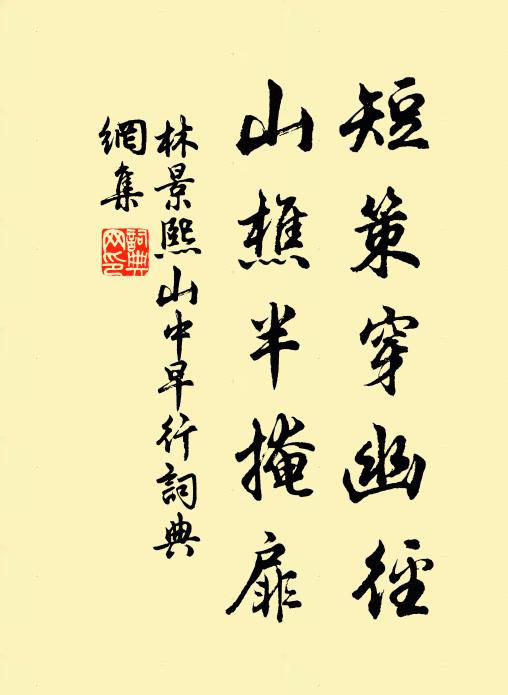 短策穿幽径
山樵半掩扉
林景熙山中早行詞典
網集
詞典
网印